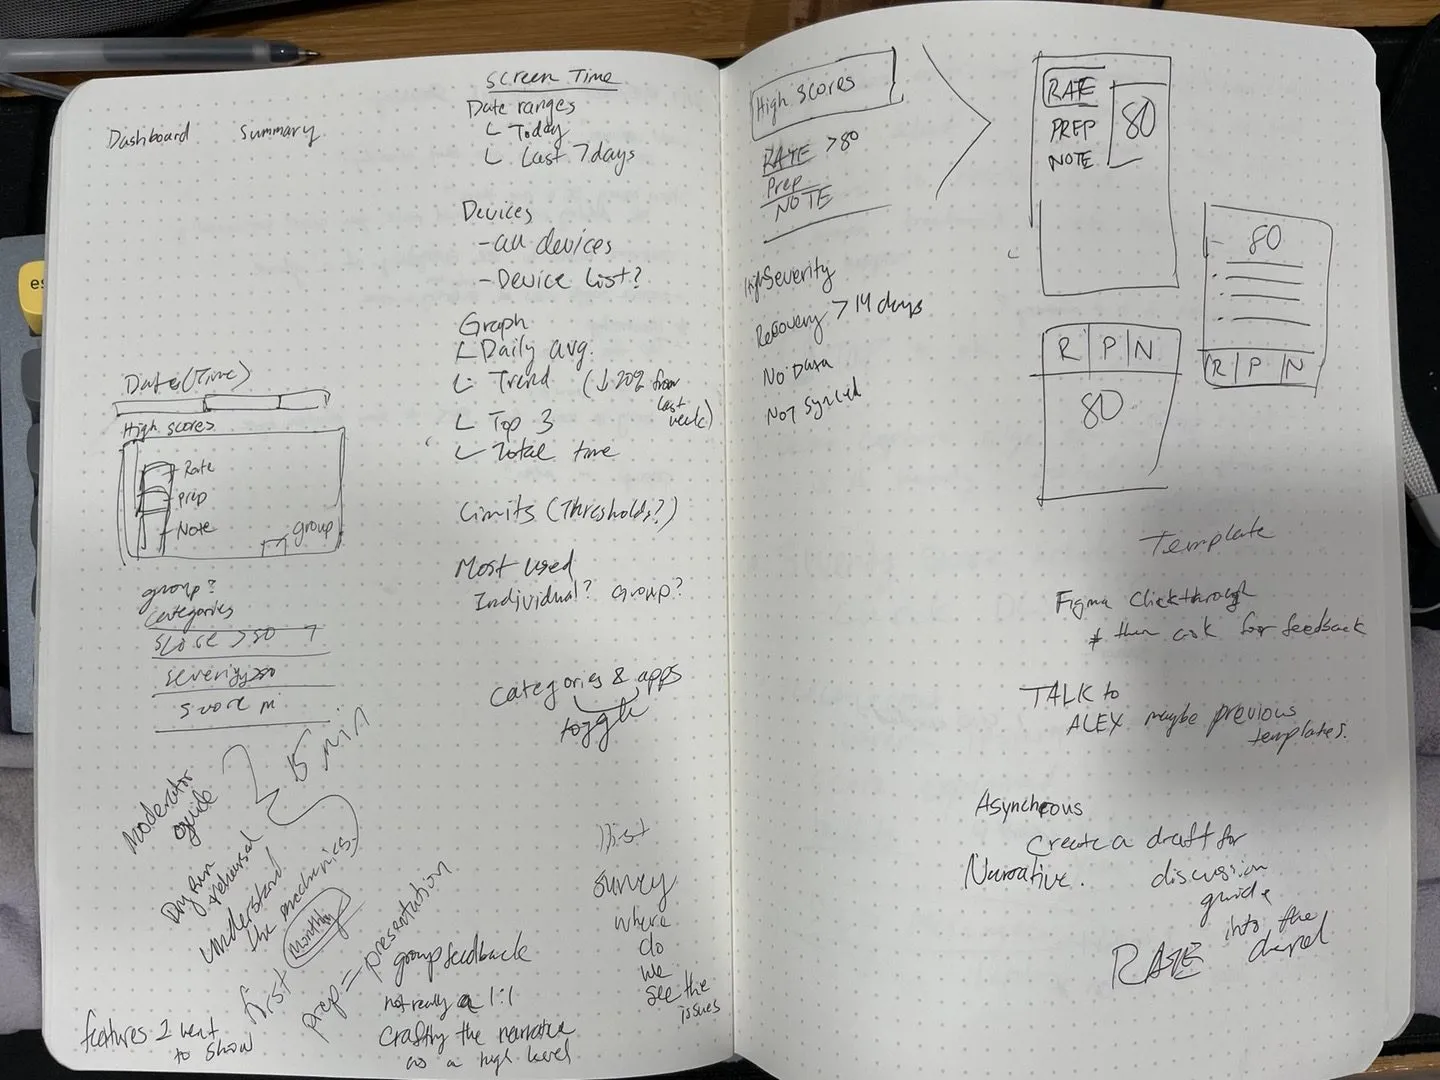 Dashboard Summary
Screen Time
Date ranges
Today
Last 7 days
Devices
- all devices
- Device List?
Graph
Daily avg.
Trend (↓20% from
last
week)
Top 3
Total time
Limits (Thresholds?)
Most used
Individual? Group?
categories & apps
toggle
Date (Time)
High scores
Rate
prep
Note
group
group?
categories
score > 80
severity > 80
score
15 min
Moderator
guide
Dry Run
rehearsal
understand
the mechanics.
first monthly
prep = presentation
features I want
to show
group feedback
not really a 1:1
Crafting the narrative
as a high level
first
survey
where
do
we
see the
issues
es
High scores
RATE > 80
Prep
NOTE
High Severity
Recovery > 14 days
No Data
Not Synced
RATE
PREP
NOTE
80
80
R P N
R P N
80
Template
Figma Clickthrough
& then ask for feedback
TALK to
ALEX maybe previous
templates.
Asynchronous
create a draft for
Narrative. discussion
guide
into the
RATE